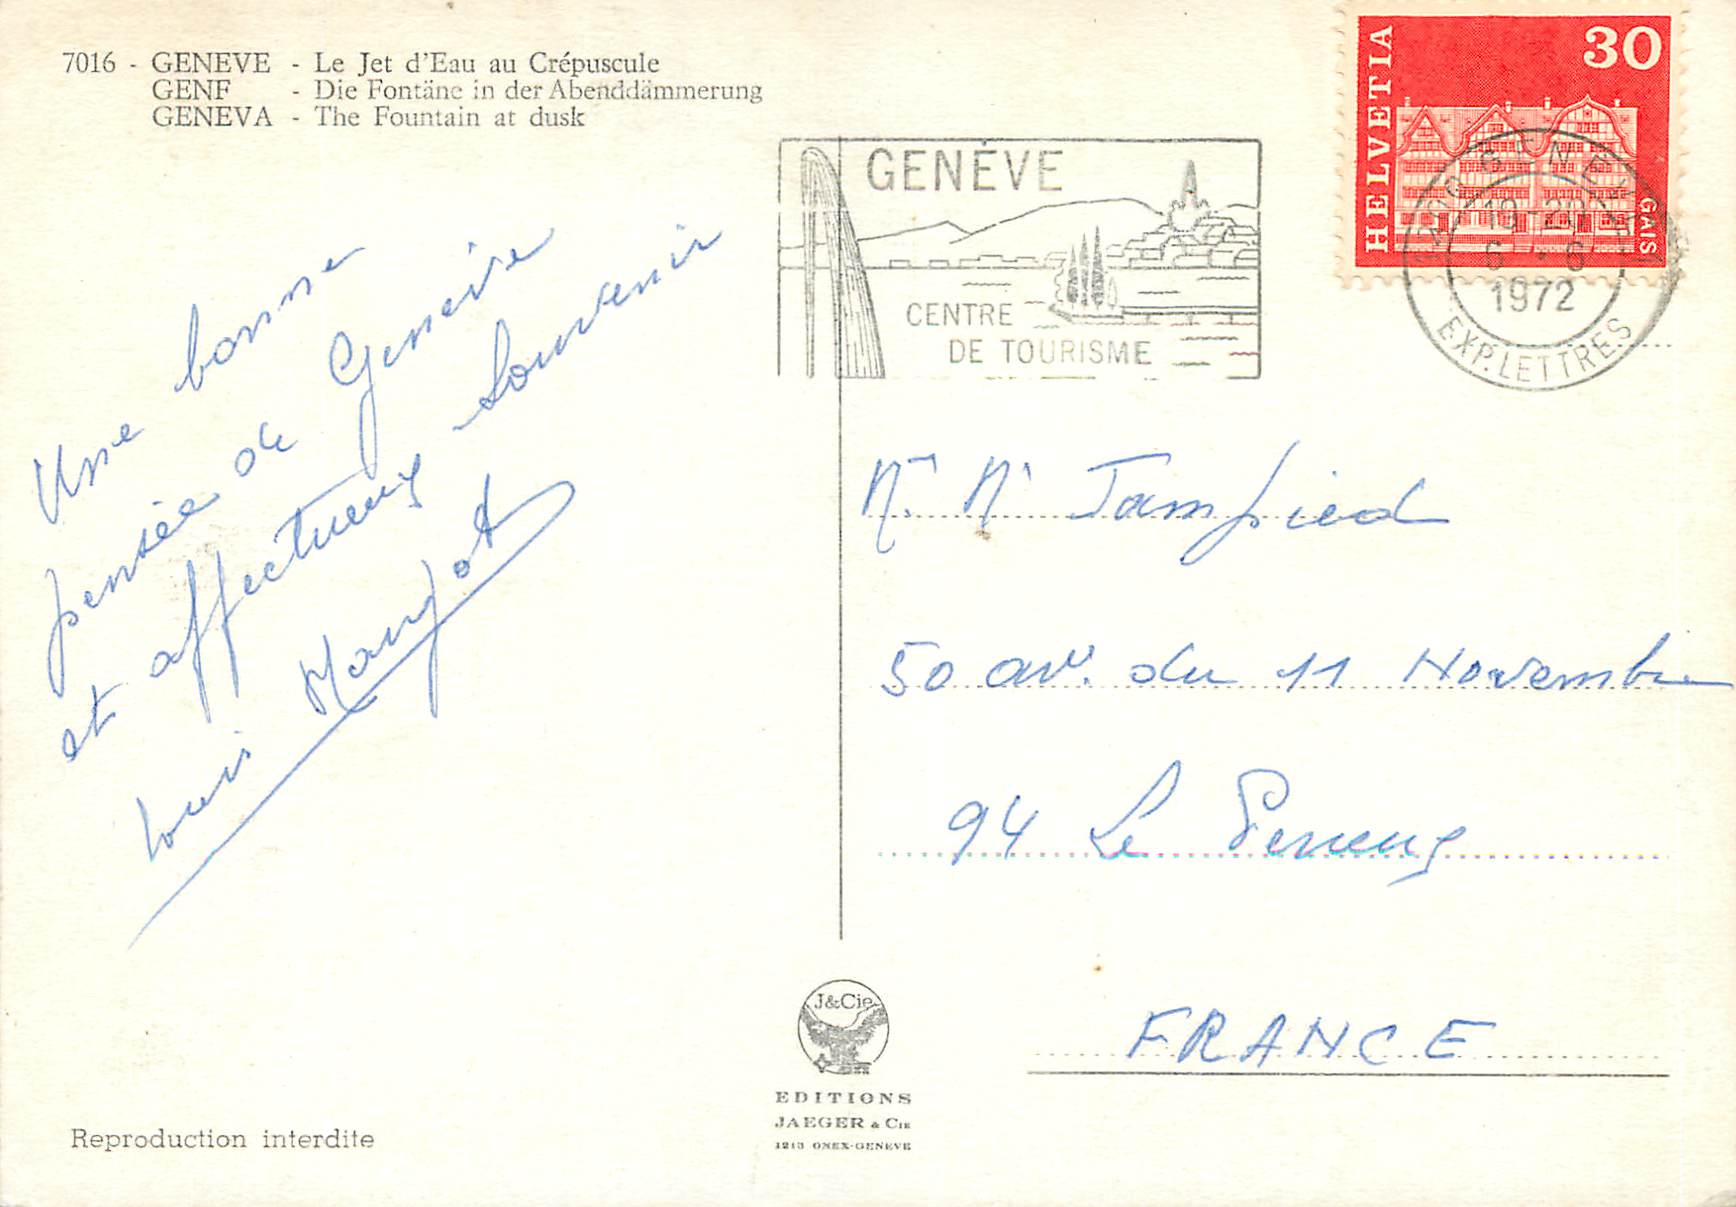 7016 - GENEVE - Le Jet d'Eau au Crépuscule
GENF - Die Fontäne in der Abenddämmerung
GENEVA - The Fountain at dusk
GENÈVE
CENTRE
DE TOURISME
HELVETIA
30
GAIS
GENEVE 1
19-20
6 - 6
1972
EXP. LETTRES
Une bonne
pensée de Genève
et affectueux souvenir
Louis
Mr Me
50 av. du 11 Novembre
94 Le Perreux
FRANCE
J&Cie
EDITIONS
JAEGER & CIE
1213 ONEX-GENEVE
Reproduction interdite